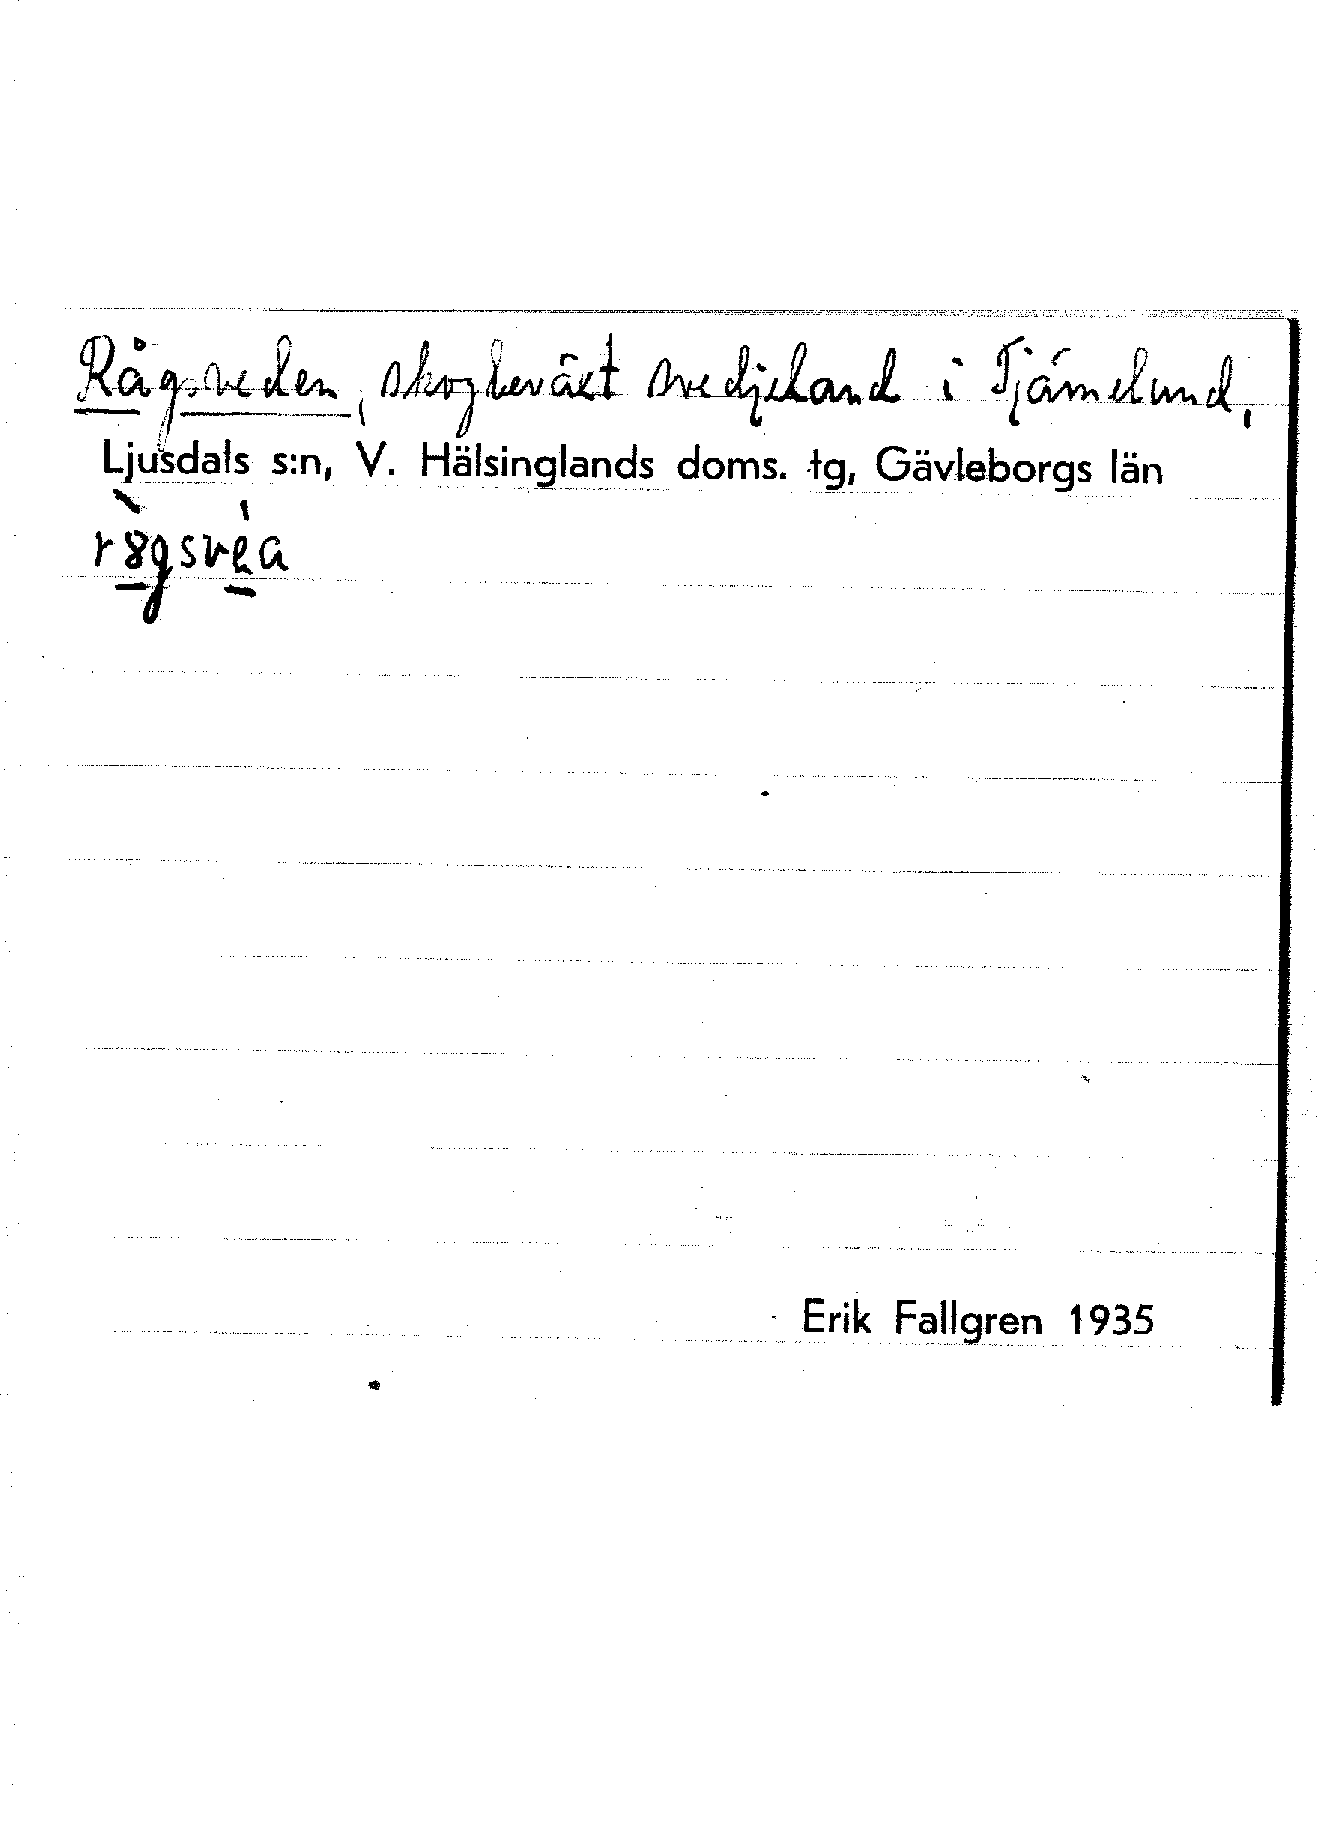 Rågsveden, skogbeväxt svedjeland i Tjärnelund,
Ljusdals s:n, V. Hälsinglands doms. tg, Gävleborgs län
Erik Fallgren 1935